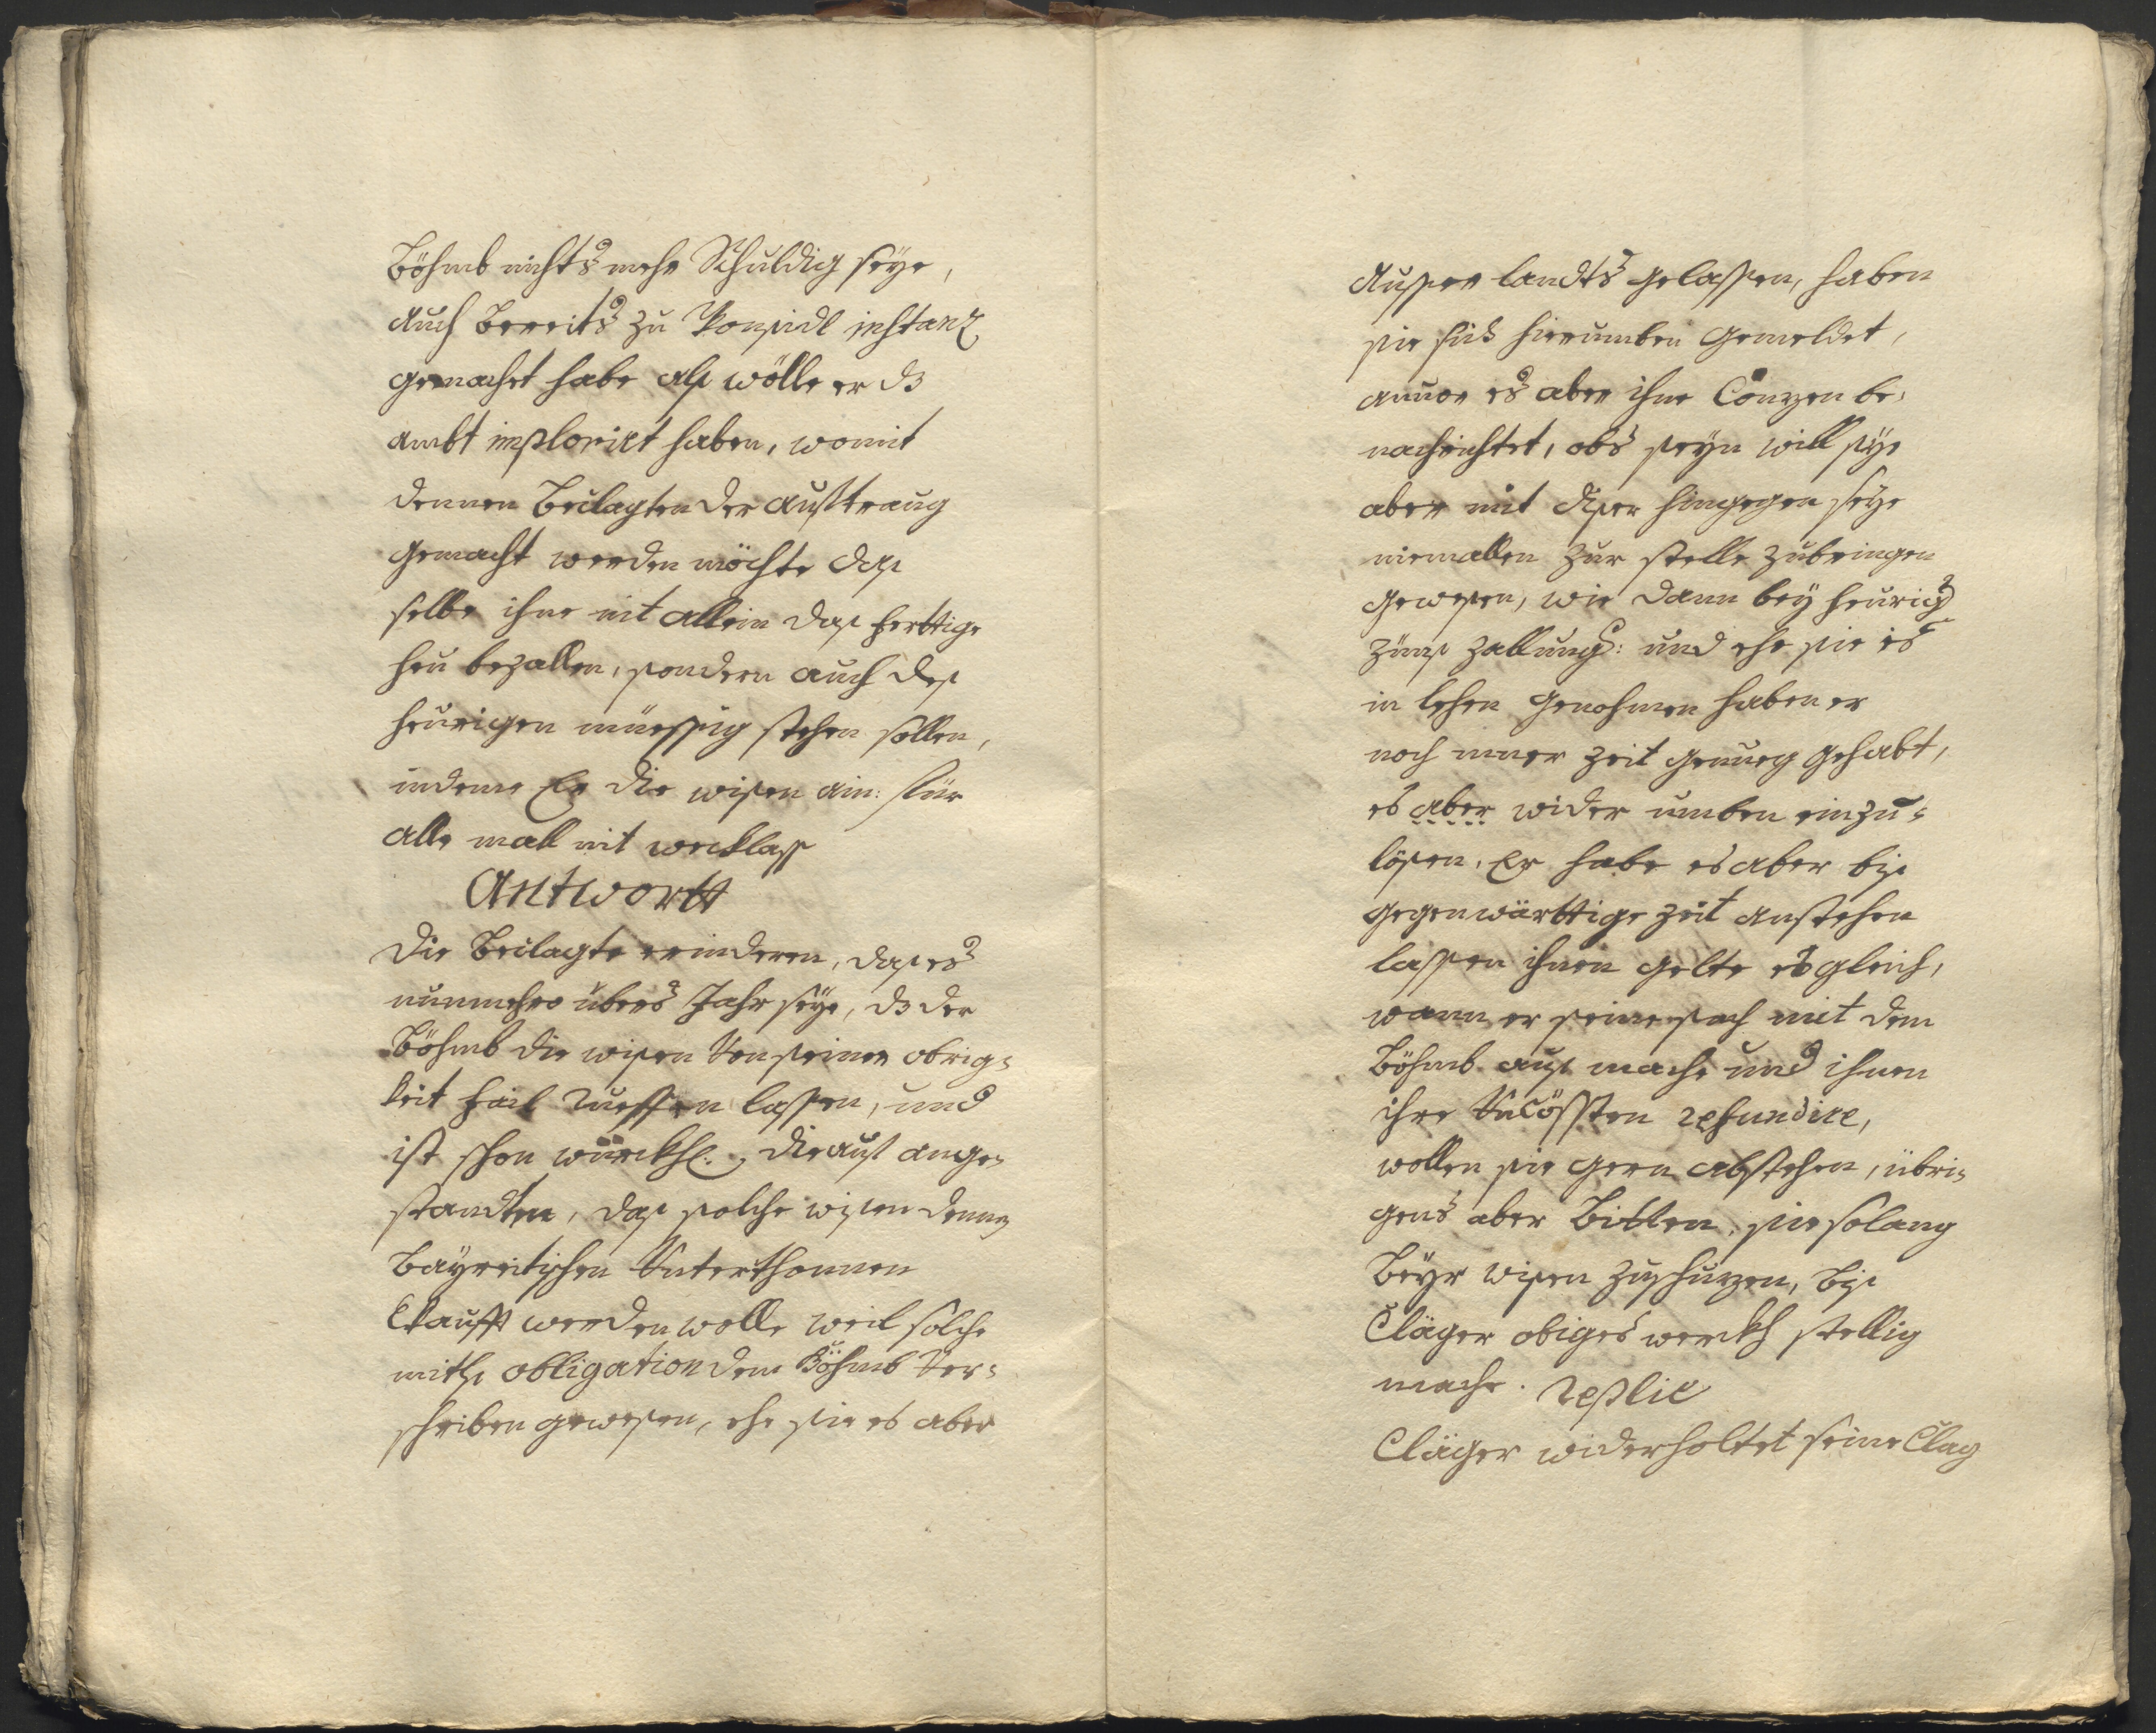 Böhmb nichts mehr Schuldig seÿe,
auch bereits zu Ponsidl instanz
gemachet habe alß wölle er dz
ambt imploriert haben, womit
dennen Beclagten der aufftraug
gemacht werden möchte daß
selbe ihme nit allein daß ferttige
heu bezallen, sondern auch deß
heurigen müessig stehen sollen,
indeme Er die wisen ain: für
alle mall nit weckhlass
Antwortt
Die Beclagte erinderen, daß es
nunmehro übers Jahr seÿe, dz der
Böhmb die wisen von seiner obrig=
keit fail rueffen lassen, und
ist schon würckhl: darauf ange=
standten, daß solche wisen denen
Baÿreitischen Unterthonnen
Erkaufft werden wolle weil solche
mitls obligation dem Böhmb ver=
schriben gewesen, ehe sie es aber
ausser landts gelassen, haben
sie sich hierumben gemeldet,
zuuor es aber ihme Conzen be=
nachrichtet, obs seÿn will seÿe
aber mit diser hingegen seÿe
niemallen zur stelle zubringen
gewesen, wie dann beÿ heurig
zünß zallung: und ehe sie es
in lehen genohmen haben er
noch imer zeit genueg gehabt,
es aber wider umben einzu=
lösen, Er habe es aber biß
gegenwärttige zeit anstehen
lassen ihnen gelte es gleich,
wann er seine sach mit dem
Böhmb auß mache und ihnen
ihre Uncössten refundire,
wollen sie gern abstehen, übri=
gens aber Bitten, sie solang
beÿr wisen zuschuzen, biß
Cläger obiges werckh stellig
mache. Replic
Cläger widerholtet seine Clag